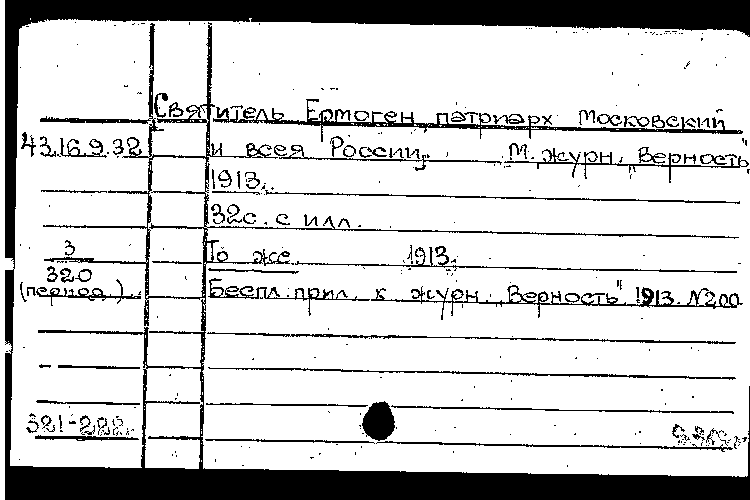 Святитель Ермоген, патриарх Московский
43.16.9.32 и всея России. М. журн. "Верность"
1913.
32с. с илл.
3 То же. 1913.
320
(период.) Беспл. прил. к журн. "Верность" 1913. №200
321-222.